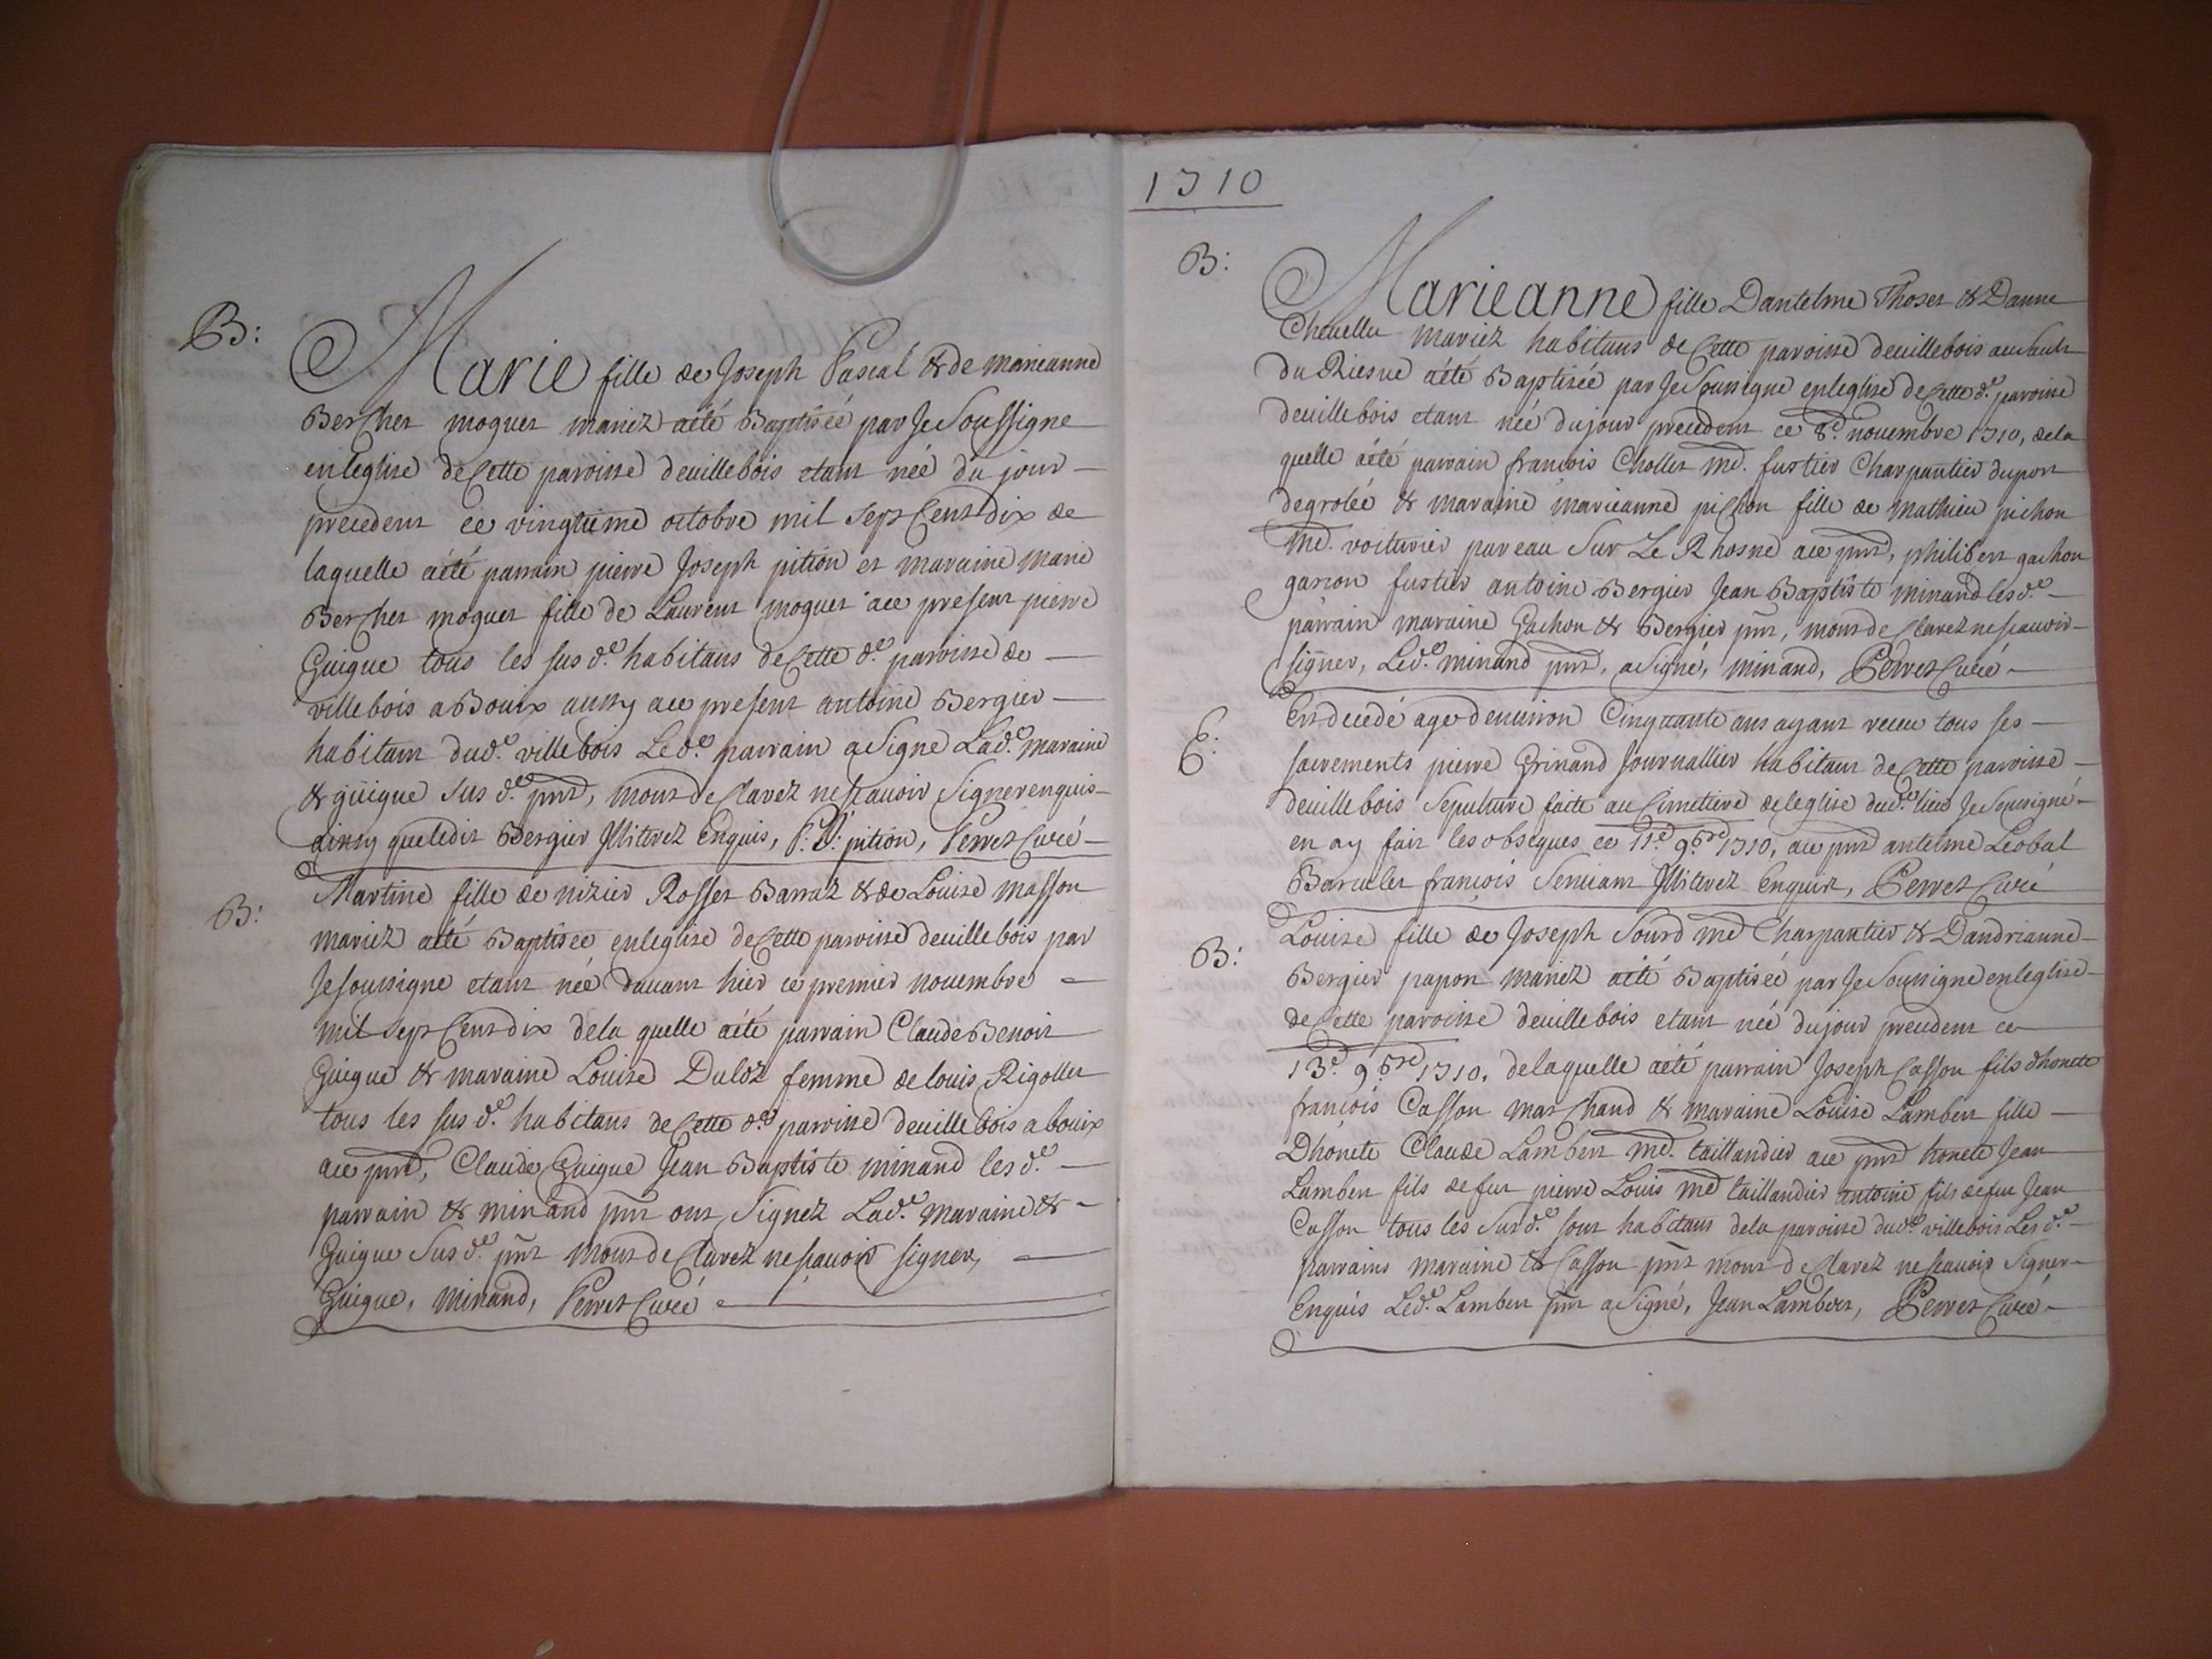 B:
Marie fille de Joseph Pascal & de marieanne
Bercher moguet mariez aété Baptiséé par Je Soussigne
enleglise decette paroisse deuillebois etant néé du jour
precedent ce vingtieme octobre mil sept Cent dix de
laquelle aété parrain pierre Joseph pition et maraine marie
Bercher moguet fille de Laurent moguet ace present pierre
Guigue tous les sus d.e habitans decette d.e paroisse de
villebois a Bouix aussy ace present antoine Bergier
habitant dud.e villebois Led.e parrain aSigne Lad.e maraine
& guigue sus d.e pnt, mont declarez nescauoir Signer enquis
ainsy queledit Bergier Illiterez Enquis, P: J: pition, Perret Curé
B:
Martine fille de nizier Rosset Barraz & de Louise masson
mariez aété Baptisée enleglise decette paroisse deuillebois par
Jesousigne etant néé dauant hier ce premier nouembre
mil sept Cent dix dela quelle aété parrain Claude Benoit
Guigue & maraine Louise Duloz femme de louis Rigollet
tous les sus d.e habitans decette d.e paroisse deuillebois a bouix
ace pnt, Claude Guigue Jean Baptiste minand les d.e
parrain & minand pnt ont Signez Lad.e maraine &
Guigue Sus d.e pnt mont declarez nescauoir signer,
Guigue, minand, Perret Curé
1710
B:
Marieanne fille Dantelme Thoset & Danne
Cheuellu mariez habitans de Cette paroisse deuillebois
aété Baptisée par Je Soussigne enleglise decette d.e paroisse
deuillebois etant néé dujour precedent ce 8.e nouembre 1710, dela
quelle aété parrain francois Chollet md. fustier Charpantier duport
degroléé & maraine marieanne pichon fille de mathieu pichon
md. voiturier pareau Sur Le Rhosne ace pnt, philibert gachon
garson fustier antoine Bergier Jean Baptiste minand les d.e
parrain maraine Gachon & Bergier pnt, mont declarez nescauoir
signer, Led.e minand pnt, aSigné, minand, Perret Curé
E:
Est decedé agé denuiron Cinquante ans ayant receu tous ses
sacrements pierre Grinand Journallier habitant de Cette paroisse
deuillebois Sepulture faite au Cimetiere deleglise dud.e lieu Je Sousigné
en ay fait les obseques ce 11.e 9.bre 1710, ace pnt antelme Leobal
Barulet francois Seruant Illiterez Enquis, Perret Curé
B:
Louise fille de Joseph Sourd md Charpantier & Dandrianne
Bergier papon mariez aété Baptiséé par Je Soussigne enleglise
deCette paroisse deuillebois etant néé dujour precedent ce
13.e 9.bre 1710, delaquelle aété parrain Joseph Casson fils dhonete
francois Casson marchand & maraine Louise Lambert fille
Dhonete Claude Lambert md. taillandier ace pnt honete Jean
Lambert fils defut pierre Louis md taillandier antoine fils defut Jean
Casson tous les Susd.e sont habitans dela paroisse dud.e villebois Les d.e
parrains maraine & Casson pnt mont declarez nescauoir Signer
Enquis Led.e Lambert pnt aSigné, Jean Lambert, Perret Curé